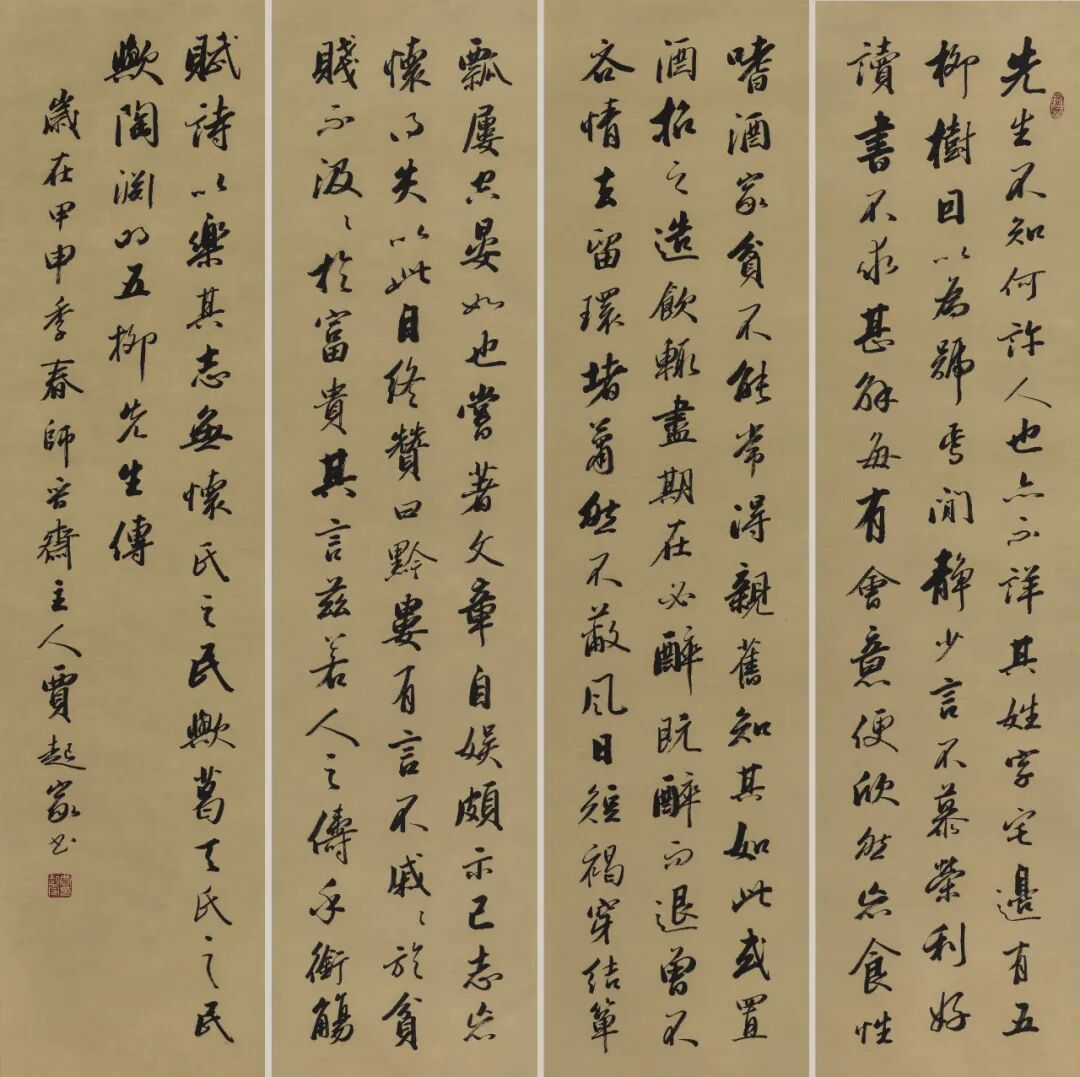 先生不知何許人也亦不詳其姓字宅邊有五
柳樹因以為號焉閒静少言不慕榮利好
讀書不求甚解每有會意便欣然忘食性
嗜酒家貧不能常得親舊知其如此或置
酒招之造飲輒盡期在必醉既醉而退曾不
吝情去留環堵蕭然不蔽風日短褐穿結簞
瓢屢空晏如也嘗著文章自娱頗示己志忘
懷得失以此自終贊曰黔婁有言不戚〻於貧
賤不汲〻於富貴其言茲若人之儔乎銜觴
賦詩以樂其志無懷氏之民歟葛天氏之民
歟陶淵明五柳先生傳
歲在甲申季春師谷齋主人賈起家書